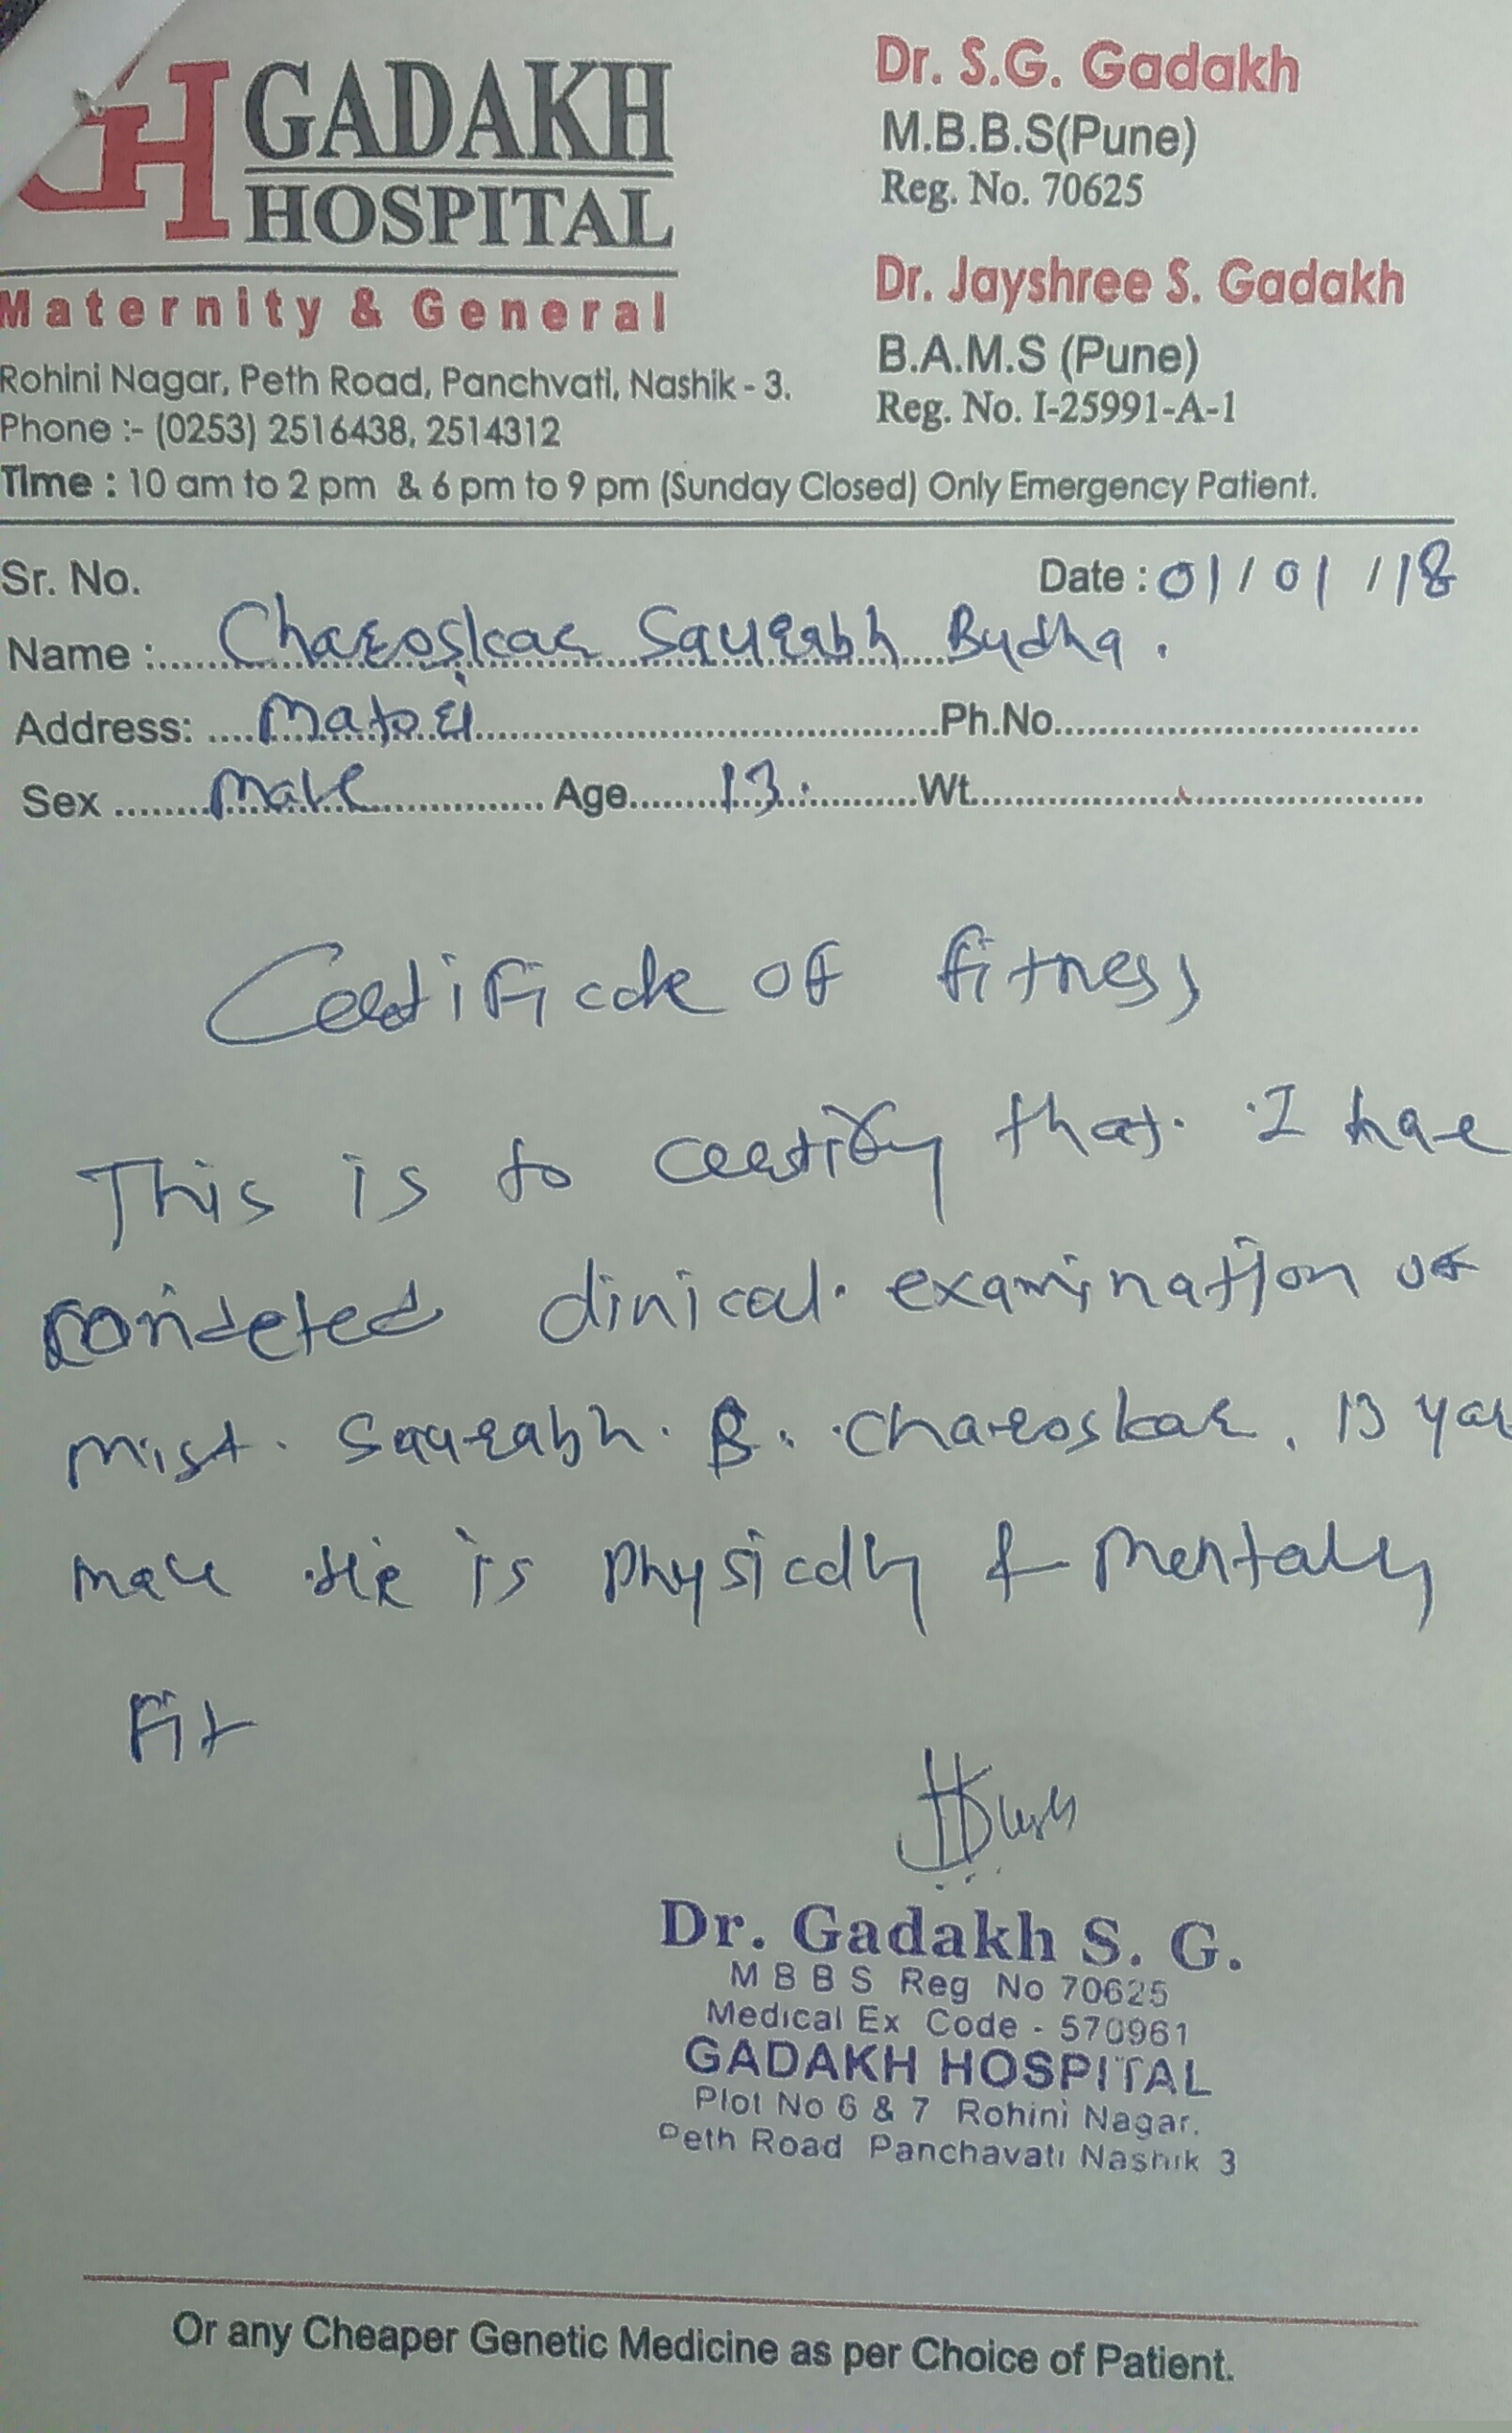 GADAKH
HOSPITAL
Maternity & General
Rohini Nagar, Peth Road, Panchvati, Nashik - 3.
Phone :- (0253) 2516438, 2514312
Time : 10 am to 2 pm & 6 pm to 9 pm (Sunday Closed) Only Emergency Patient.
Dr. S.G. Gadakh
M.B.B.S(Pune)
Reg. No. 70625
Dr. Jayshree S. Gadakh
B.A.M.S (Pune)
Reg. No. I-25991-A-1
Sr. No. Date : 01/01/18
Name : Charoskar Saurabh Budha.
Address: Matori Ph.No.
Sex Male Age 13. Wt.
Certificate of fitness
This is to certify that. I have
clinical. examination of
mist. Saurabh. B. Charoskar. 13 year
male He is Physically & Mentally
Fit
Dr. Gadakh S. G.
M B B S Reg No 70625
Medical Ex Code - 570961
GADAKH HOSPITAL
Plot No 6 & 7 Rohini Nagar.
Peth Road Panchavati Nashik 3
Or any Cheaper Genetic Medicine as per Choice of Patient.